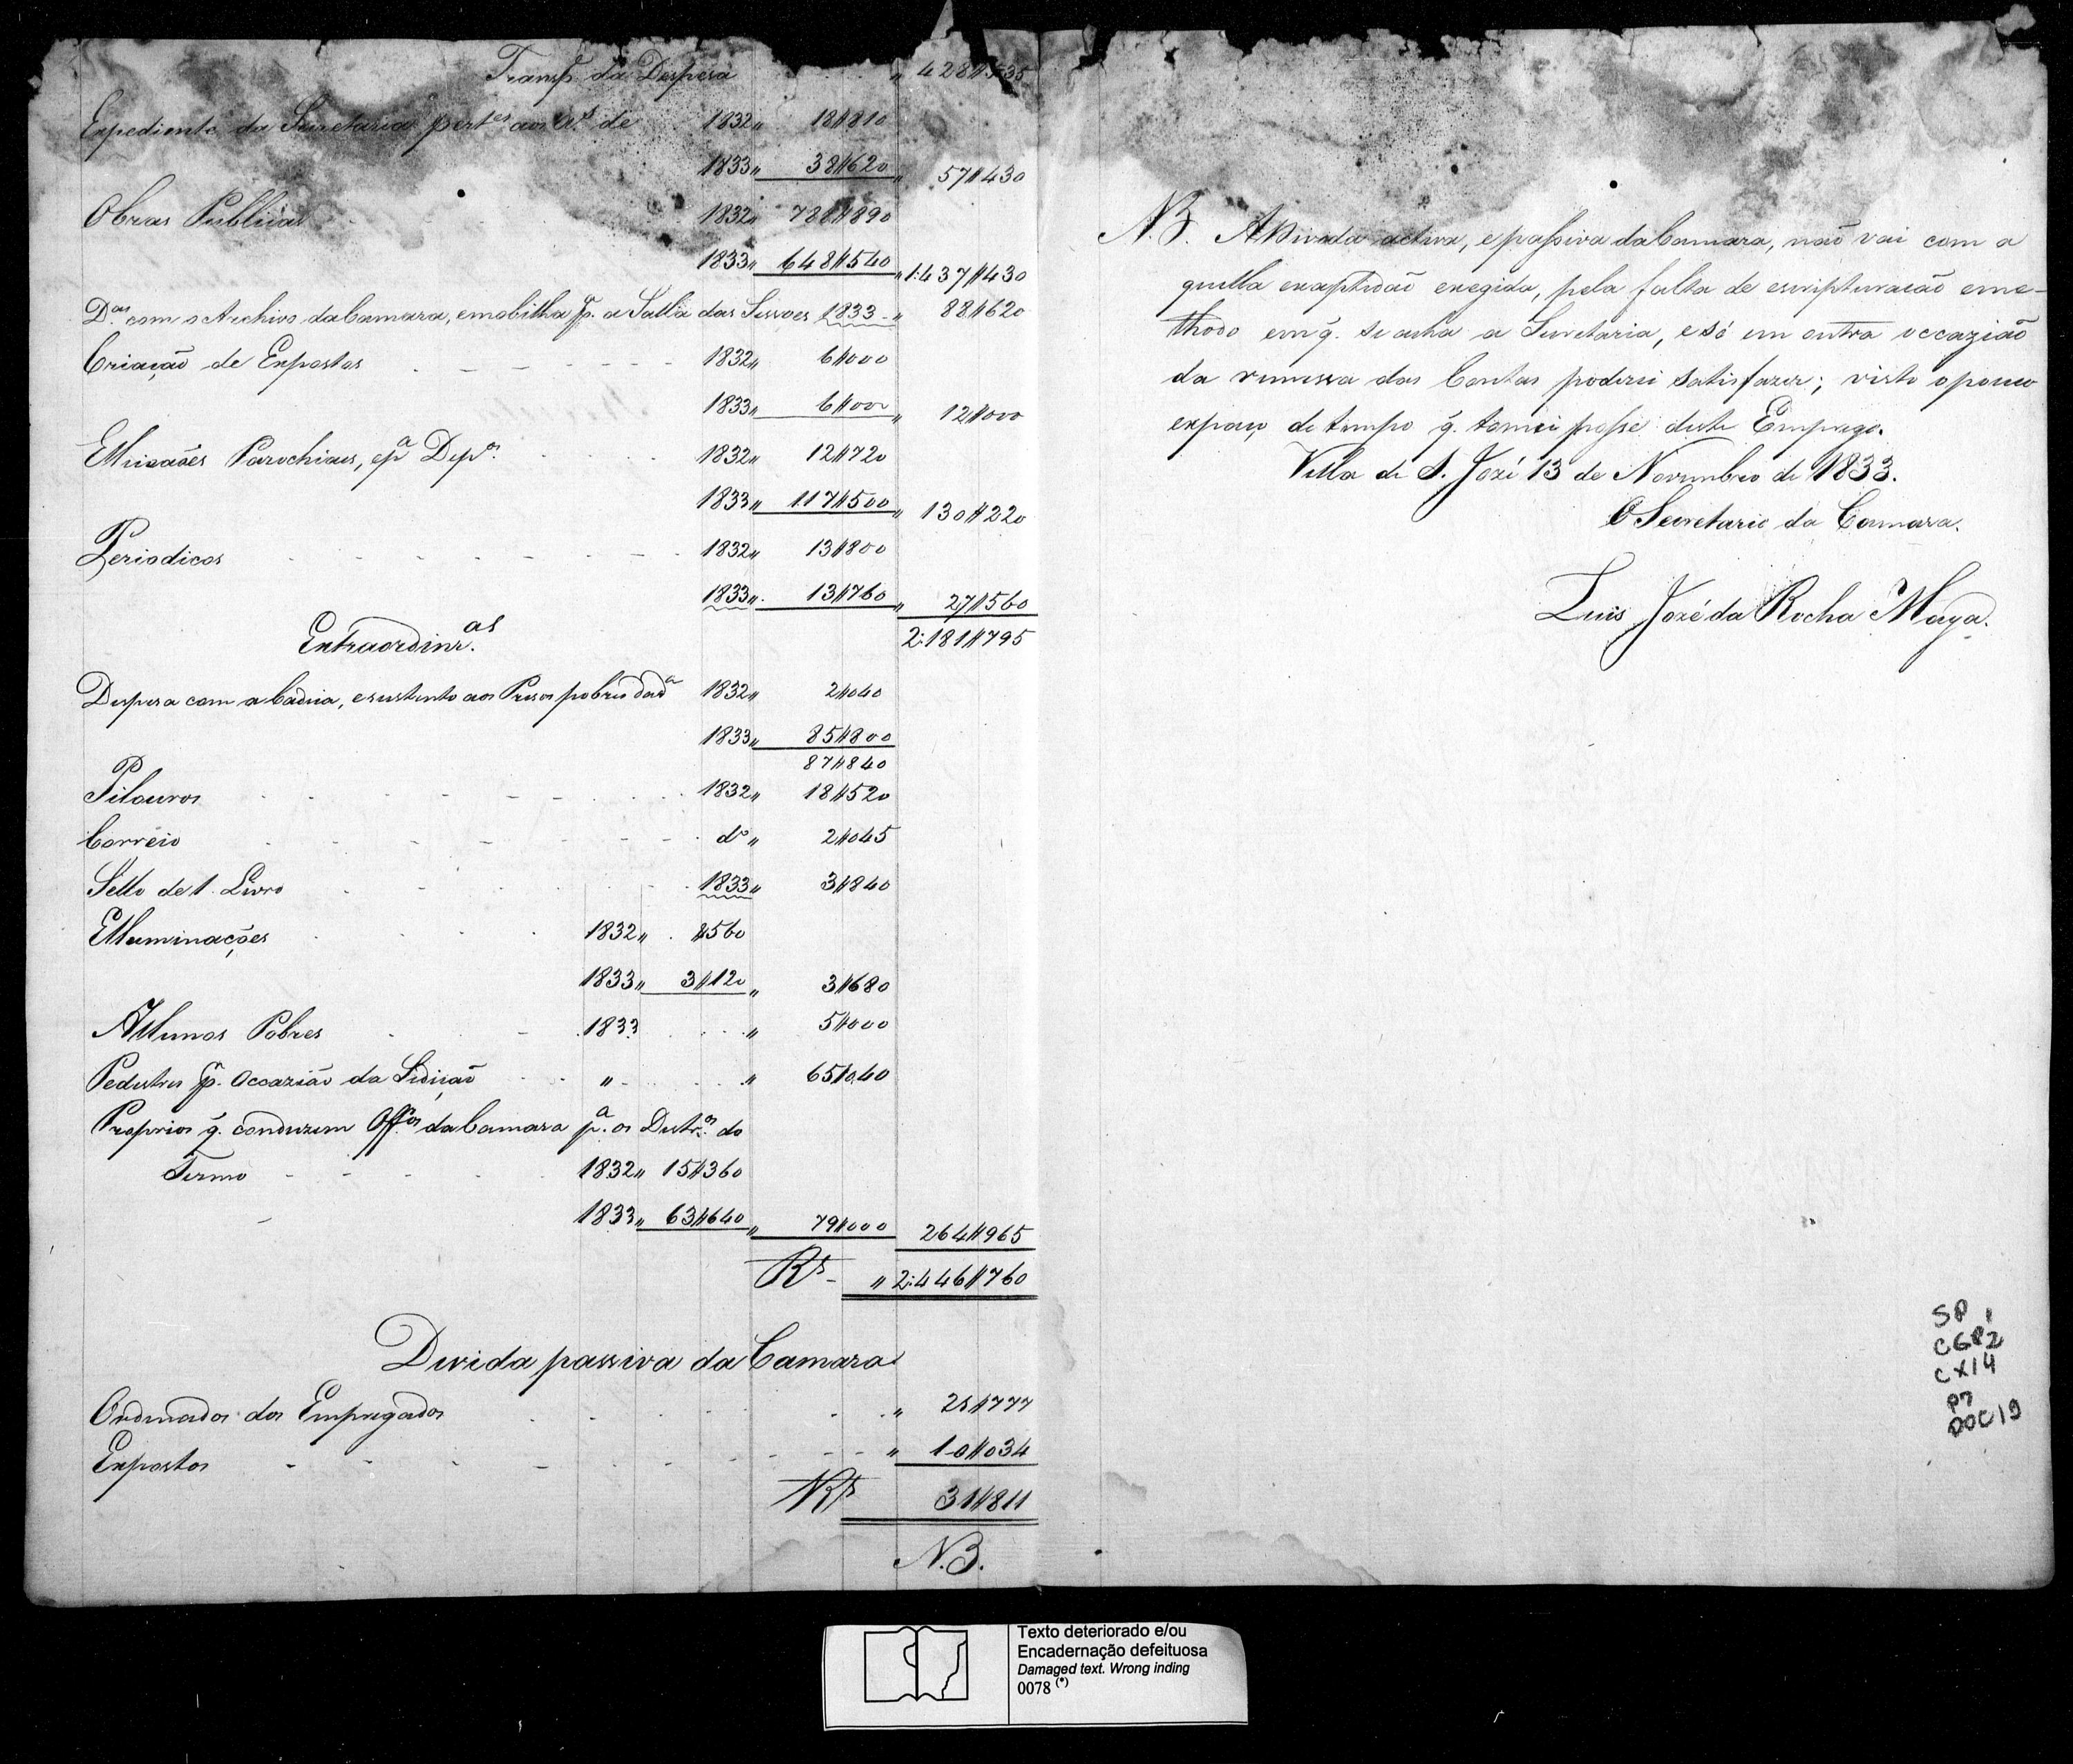 Transp. da Despesa „ 428//535
Expediente da Secretaria pert.es aos a.s de 1832„ 18//810
1833„ 38//620 „ 57//430
Obras Publicas 1832„ 788//890
1833„ 648//540 „ 1:437//430
D.as com o Archivo da Camara, e mobilha p. a Salla das Sessoes 1833 - „ 88//620
Criação de Expostos 1832„ 6//000
1833„ 6//000 „ 12//000
Elleicões Parochiaes, e p.a Dep.os 1832„ 12//720
1833„ 117//500 „ 130//220
Periodicos 1832„ 13//800
1833„ 13//760 „ 27//560
Extraordinr.as 2:181//795
Despesa com a Cadeia, e sustento aos Presos pobres da d.a 1832„ 2//040
1833„ 85//800
87//840
Pilouros 1832„ 18//520
Correio d.o „ 2//045
Sello de 1. Livro 1833„ 3//840
Elluminações 1832„ //560
1833„ 3//120 „ 3//680
Allunos Pobres 1833 „ 5//000
Pedestres p. Occazião da Sedição „ „ 65//040
Proprios q̃. conduzem Off.os da Camara p.a os Destr.os do
Termo 1832„ 15//360
1833„ 63//640 „ 79//000 264//965
R.s - „ 2:446//760
Divida passiva da Camara
Ordenados dos Empregados „ 21//777
Expostos „ 10//034
R.s 31//811
N.B.
N.B. A Divida activa, e passiva da Camara, naõ vai com a
quella exaptidaõ exegida, pela falta de escripturacaõ e me-
thodo em q̃. se acha a Secretaria, e só em outra occazião
da remessa das Contas poderei satisfazer; visto o pouco
espaço de tempo q̃. tomei posse deste Emprego.
Villa de S. Jozé 13 de Novembro de 1833.
O Secretario da Camara.
Luis Jozé da Rocha Maya.
SP 1
CGP2
CX14
P7
DOC19
Texto deteriorado e/ou
Encadernação defeituosa
Damaged text. Wrong inding
0078 (*)